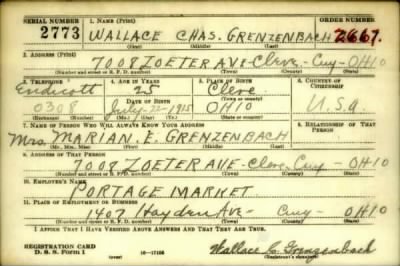 SERIAL NUMBER 1. NAME (Print) ORDER NUMBER
2773 WALLACE CHAS. GRENZENBACH 2667.
(First) (Middle) (Last)
2. ADDRESS (Print)
7008 ZOETER AVE - Cleve - Cuy - OHIO
(Number and street or R. F. D. number) (Town) (County) (State)
3. TELEPHONE 4. AGE IN YEARS 5. PLACE OF BIRTH 6. COUNTRY OF CITIZENSHIP
Endicott 25 Cleve.
DATE OF BIRTH (Town or county)
0308 July-22-1915 OHIO U.S.a
(Exchange) (Number) (Mo.) (Day) (Yr.) (State or country)
7. NAME OF PERSON WHO WILL ALWAYS KNOW YOUR ADDRESS 8. RELATIONSHIP OF THAT PERSON
Mrs MARIAN. E. GRENZENBACH
(Mr., Mrs., Miss) (First) (Middle) (Last)
9. ADDRESS OF THAT PERSON
7008 ZOETER AVE - Cleve. Cuy - OHIO
(Number and street or R. F. D. number) (Town) (County) (State)
10. EMPLOYER'S NAME
PORTAGE MARKET
11. PLACE OF EMPLOYMENT OR BUSINESS
1407 Hayden Ave - Cuy - OHIO
(Number and street or R. F. D. number) (Town) (County) (State)
I AFFIRM THAT I HAVE VERIFIED ABOVE ANSWERS AND THAT THEY ARE TRUE.
REGISTRATION CARD
D. S. S. Form 1 16-17105 Wallace C. Grenzenbach
(Registrant's signature)